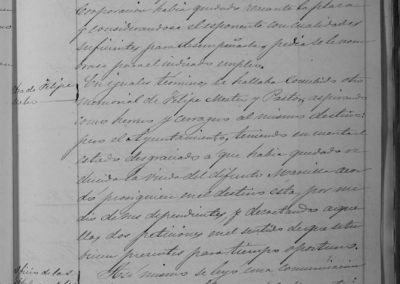 Corporacion habia quedado vacante la plaza
y considerandose el esponente con cualidades
suficientes para desempeñarla, pedia se le nom-
brase para el indicado empleo.
da de Felipe
En iguales terminos se hallaba concebido otro
memorial de Felipe Mateu y Pastor, aspirando
como herrero y cerragero al mismo destino:
pero el Ayuntamiento, teniendo en cuenta el
estado desgraciado a que habia quedado re-
ducida la viuda del difunto acor-
dó prosiguiera en el destino esta por me-
dio de sus dependientes y decretando aque-
llas dos peticiones en el sentido de que se tu-
biesen presentes para tiempo oportuno.
de las
Asi mismo se leyó una comunicacion